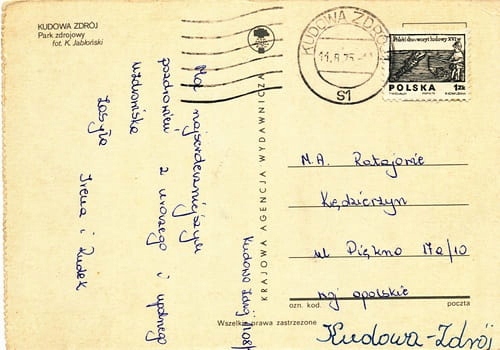 KUDOWA ZDRÓJ
Park zdrojowy
fot. K. Jabłoński
KUDOWA ZDRÓJ
11.8.75
S1
Polski drzeworyt ludowy XVI w.
POLSKA
1 ZŁ
KRAJOWA AGENCJA WYDAWNICZA
Moc najserdeczniejszych
pozdrowień z uroczego i
uzdrowiska
Zasyła
Irena i Rudek
Kudowa Zdrój
M.A. Ratajowie
Kędzierzyn
ul Piękna 17a/10
woj opolskie
ozn. kod.
poczta
Wszelkie prawa zastrzeżone
Kudowa-Zdrój